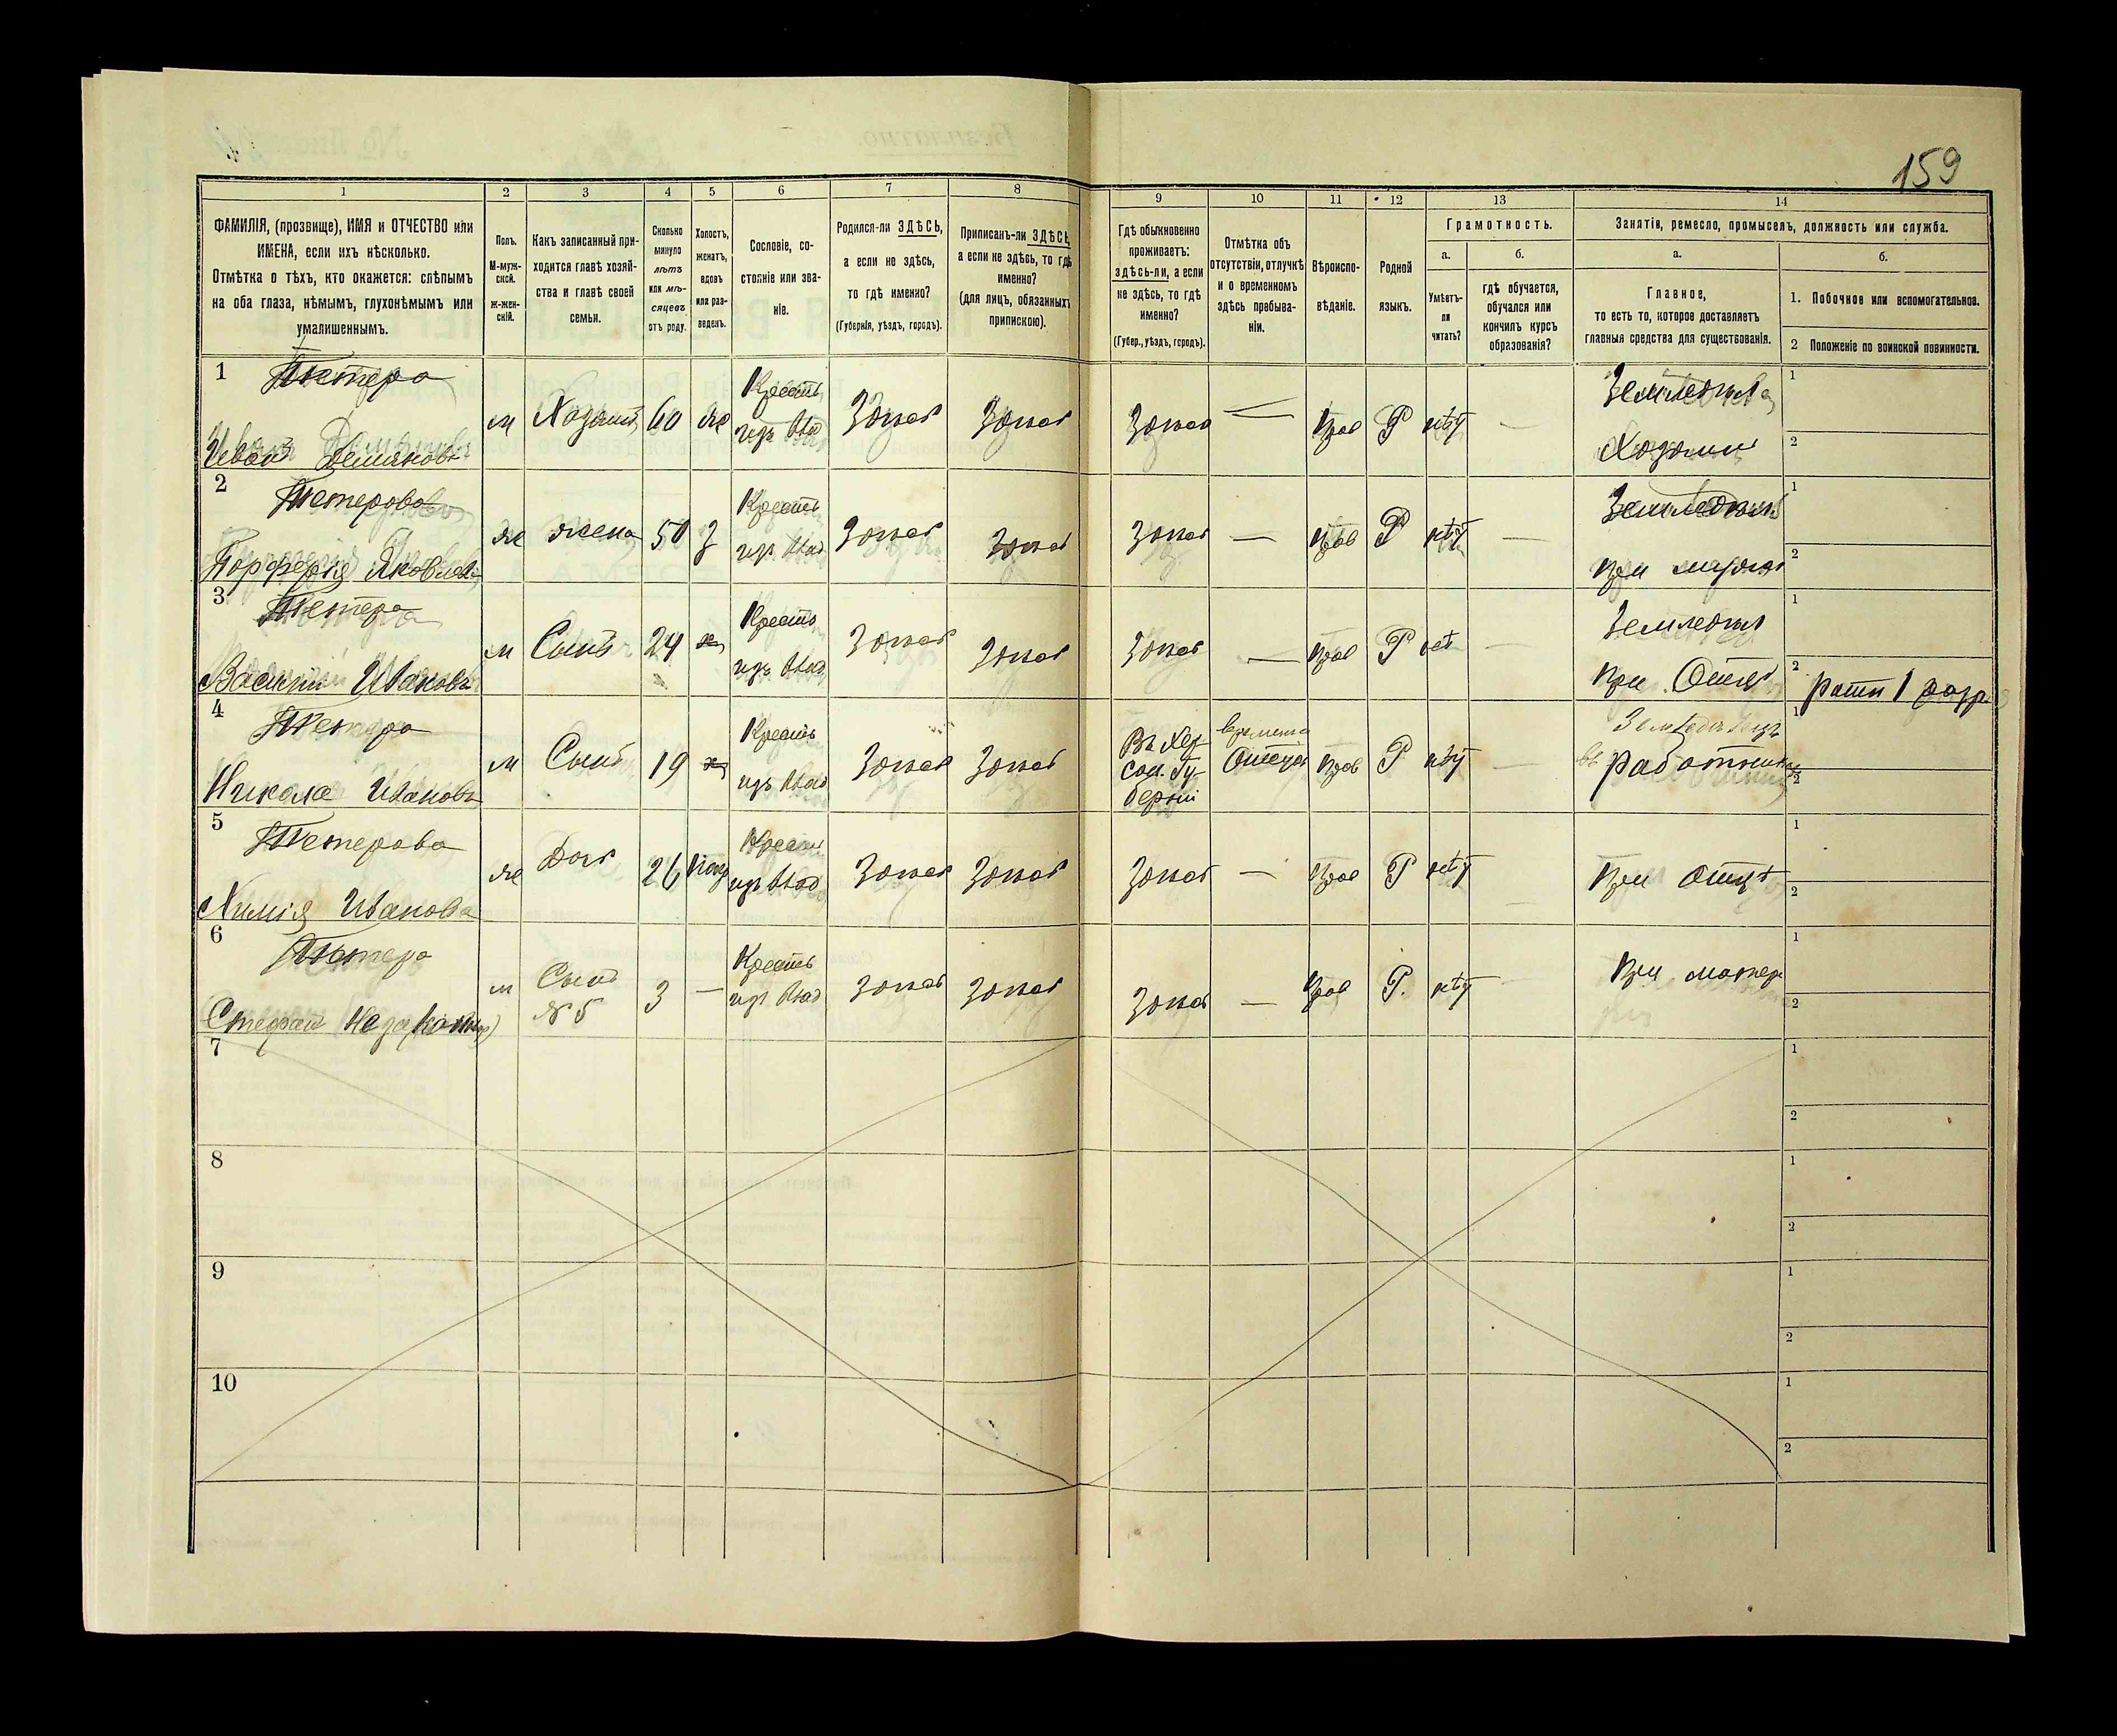 159
1 2 3 4 5 6 7 8 9 10 11 12 13 14
ФАМИЛІЯ, (прозвище), ИМЯ и ОТЧЕСТВО или
ИМЕНА, если ихъ нѣсколько.
Отмѣтка о тѣхъ, кто окажется: слѣпымъ
на оба глаза, нѣмымъ, глухонѣмымъ или
умалишеннымъ.
Полъ.
М-муж-
ской.
Ж-жен-
скій.
Какъ записанный при-
ходится главѣ хозяй-
ства и главѣ своей
семьи.
Сколько
минуло
лѣтъ
или мѣ-
сяцевъ
отъ роду.
Холостъ,
женатъ,
вдовъ
или раз-
веденъ.
Сословіе, со-
стояніе или зва-
ніе.
Родился-ли ЗДѢСЬ,
а если не здѣсь,
то гдѣ именно?
(Губернія, уѣздъ, городъ).
Приписанъ-ли ЗДѢСЬ,
а если не здѣсь, то гдѣ
именно?
(для лицъ, обязанныхъ
припискою).
Гдѣ обыкновенно
проживаетъ:
здѣсь-ли, а если
не здѣсь, то гдѣ
именно?
(Губер., уѣздъ, городъ).
Отмѣтка объ
отсутствіи, отлучкѣ
и о временномъ
здѣсь пребыва-
ніи.
Вѣроиспо-
вѣданіе.
Родной
языкъ.
Грамотность.
а.
Умѣетъ-
ли
читать?
б.
гдѣ обучается,
обучался или
кончилъ курсъ
образованія?
Занятія, ремесло, промыселъ, должность или служба.
а.
Главное,
то есть то, которое доставляетъ
главныя средства для существованія.
б.
1. Побочное или вспомогательное.
2 Положеніе по воинской повинности.
1 Тетеро Кресть
Иванъ м Хозяинъ 60 изъ влад здѣсь здѣсь здѣсь — прав Р нѣтъ — Хозяинъ 1
2
2 Тетерова Кресть
Яковлева ж жена 50 з изъ влад здѣсь здѣсь здѣсь — прав Р нѣтъ — при мужѣ 1
2
3 Тетеро Кресть
Василій Ивановъ м Сынъ 24 х изъ влад здѣсь здѣсь здѣсь — прав Р — при Отцѣ 1
2 1 разр.
4 Тетеро Кресть
Никола Ивановъ м Сынъ 19 х изъ влад здѣсь здѣсь Въ Хер-
сон. Гу-
берніи прав Р нѣтъ — 1
2
5 Тетерова Кресть
Иванова ж Доч 26 изъ влад здѣсь здѣсь здѣсь — прав Р нѣтъ — при отцѣ 1
2
6 Тетеро Кресть
Стефан м Сынъ
№ 5 3 — изъ влад здѣсь здѣсь здѣсь — прав Р. нѣтъ — при матери 1
2
7 1
2
8 1
2
9 1
2
10 1
2